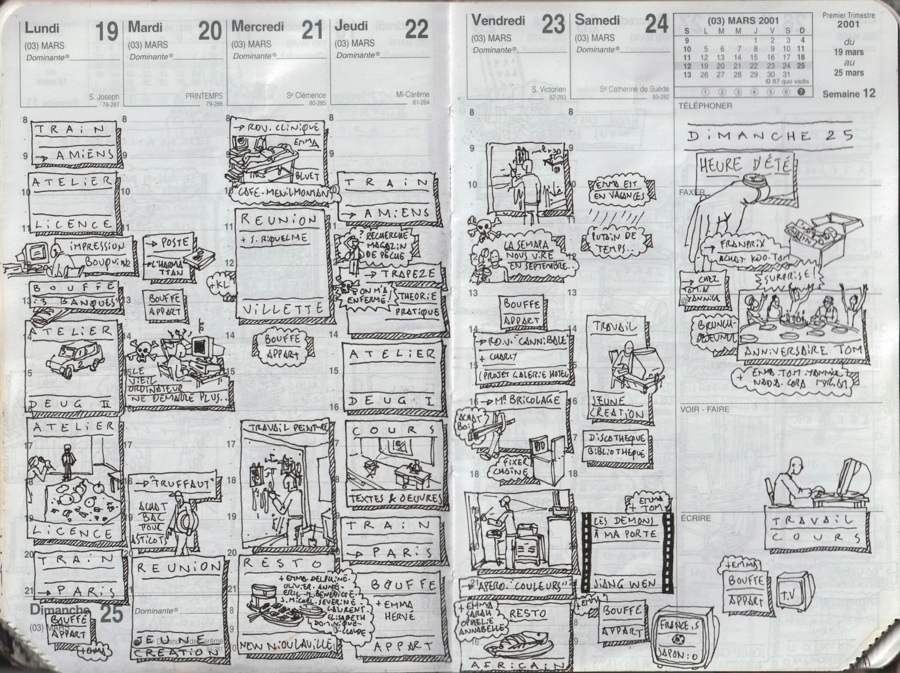 Lundi 19
(03) MARS
Dominante
S. Joseph
78-287
8
TRAIN
→ AMIENS
ATELIER
LICENCE
IMPRESSION
BOUQUINS
BOUFFE
ATELIER
DEUG II
ATELIER
LICENCE
TRAIN
→ PARIS
Dimanche 25
(03) MARS
BOUFFE
APPART
Mardi 20
(03) MARS
Dominante
PRINTEMPS
79-286
→ POSTE
BOUFFE
APPART
LE
VIEIL
ORDINATEUR
NE DEMARRE PLUS..
→ "TRUFFAUT"
ACHAT
BAC
POUR
ASTICOTS
REUNION
Dominante
JEUNE
CREATION
Mercredi 21
(03) MARS
Dominante
Se Clémence
80-285
8
→ RDV. CLINIQUE
EMMA
BLUET
CAFE-MENILMONTANT
REUNION
+ S. RIQUELME
VILLETTE
BOUFFE
APPART
TRAVAIL PEINTURE
RESTO
NEW NIOULAVILLE
Jeudi 22
(03) MARS
Dominante
Mi-Carême
81-284
TRAIN
→ AMIENS
RECHERCHE
MAGAZIN
DE PÊCHE
→ TRAPEZE
THEORIE
PRATIQUE
ATELIER
DEUG I
COURS
TEXTES & OEUVRES
TRAIN
→ PARIS
BOUFFE
+ EMMA
HERVÉ
APPART
Vendredi 23
(03) MARS
S. Victorien
82-283
8
LA SEMAPA
NOUS VIRE
EN SEPTEMBRE..
BOUFFE
APPART
→ RDV. "CANNIBALE"
+ CHARLY
(PROJET GALERIE HOTEL)
→ Mr BRICOLAGE
ACHAT
BOIS
FIXER
CHAINE
APERO "COULEURS"
+ EMMA
SARAH
OPHELIE
ANNABELLE
RESTO
AFRICAIN
Samedi 24
(03) MARS
Se Catherine de Suède
83-282
EMMA EST
EN VACANCES
PUTAIN DE
TEMPS...
TRAVAIL
JEUNE
CREATION
DISCOTHEQUE
BIBLIOTHEQUE
EMMA
+ TOM
LES DEMONS
A MA PORTE
JIANG WEN
BOUFFE
APPART
FRANCE:5
JAPON:0
(03) MARS 2001
S L M M J V S D
9 1 2 3 4
10 5 6 7 8 9 10 11
11 12 13 14 15 16 17 18
12 19 20 21 22 23 24 25
13 26 27 28 29 30 31
© 87 quo vadis
1 2 3 4 5 6 7
Premier Trimestre
2001
du
19 mars
au
25 mars
Semaine 12
TÉLÉPHONER
DIMANCHE 25
HEURE D'ÉTÉ
FAXER
→ FRANPRIX
SURPRISE!
→ CHEZ
TOM &
YANNICK
BRUNCH-
DEJEUNER
ANNIVERSAIRE TOM
VOIR - FAIRE
ÉCRIRE
TRAVAIL
COURS
+EMMA
BOUFFE
APPART
TV